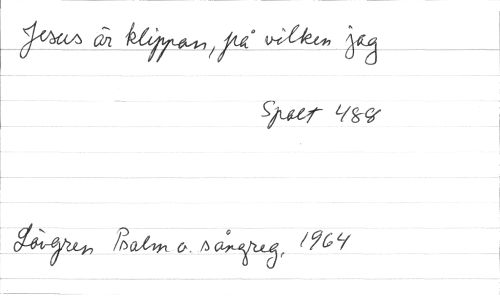 Jesus är klippan, på vilken jag
Spalt 488
Lövgren Psalm o. sångreg. 1964